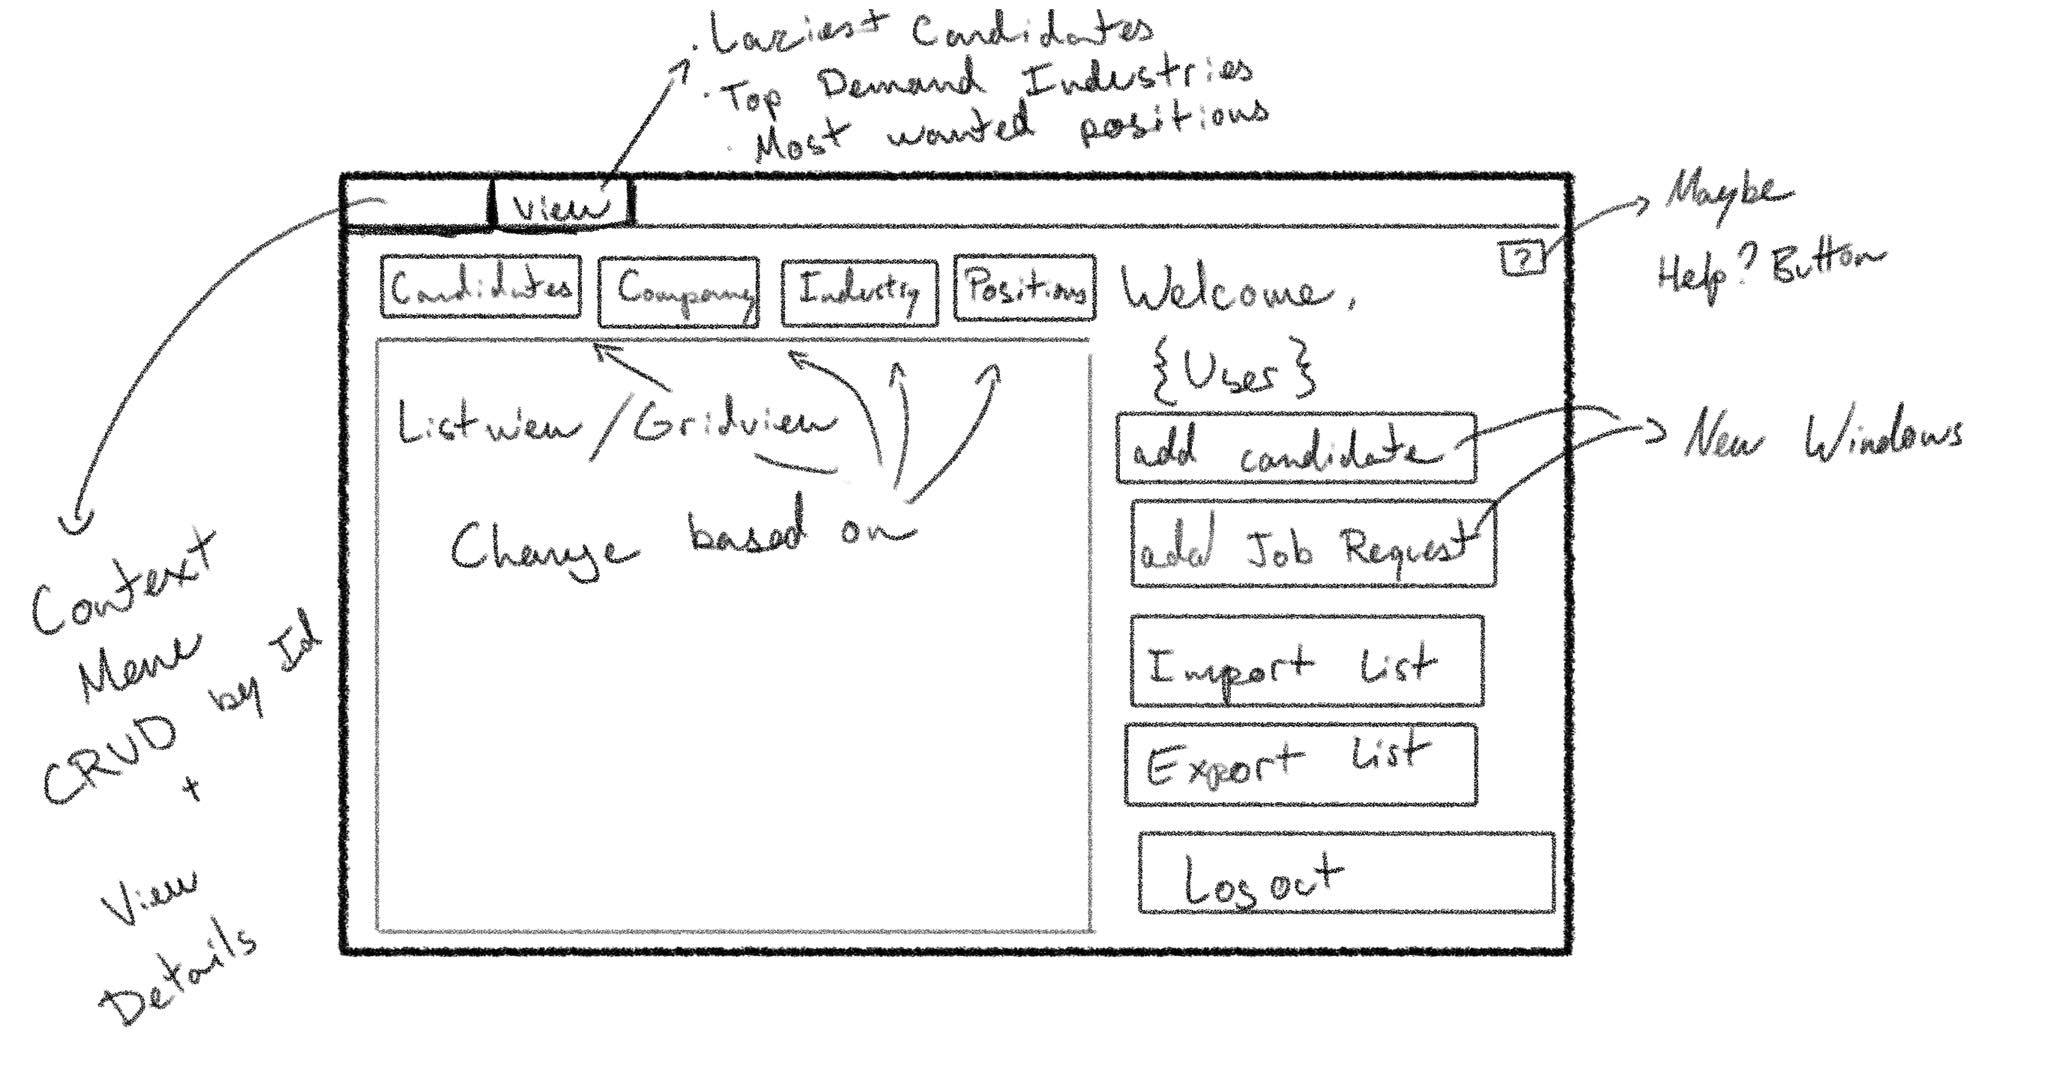 · Laziest Candidates
· Top Demand Industries
· Most wanted positions
View
Maybe
Help? Button
?
Candidates
Company
Industry
Positions
Welcome,
{User}
Listview / Gridview
Change based on
add candidate
New Windows
add Job Request
Import List
Export List
Logout
Context
Menu
CRUD by Id
+
View
Details